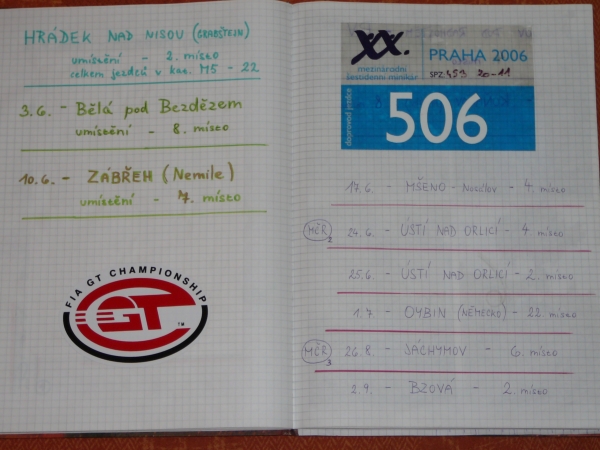 HRÁDEK NAD NISOU (GRABŠTEJN)
umístění - 2. místo
celkem jezdců v kat. M5 - 22
3.6. - Bělá pod Bezdězem
umístění - 8. místo
10.6. - ZÁBŘEH (Nemile)
umístění - 7. místo
FIA GT CHAMPIONSHIP
GT
TM
XX.
mezinárodní
šestidenní
PRAHA 2006
SPZ 459 20-11
doprovod práce
506
17.6. - MŠENO - - 4. místo
MČR 2 24.6. - ÚSTÍ NAD ORLICÍ - 4 místo
25.6. - ÚSTÍ NAD ORLICÍ - 2. místo
1.7. - OYBIN (NĚMECKO) - 22. místo
MČR 3 26.8. - JÁCHYMOV - 6. místo
2.9. - BZOVÁ - 2. místo